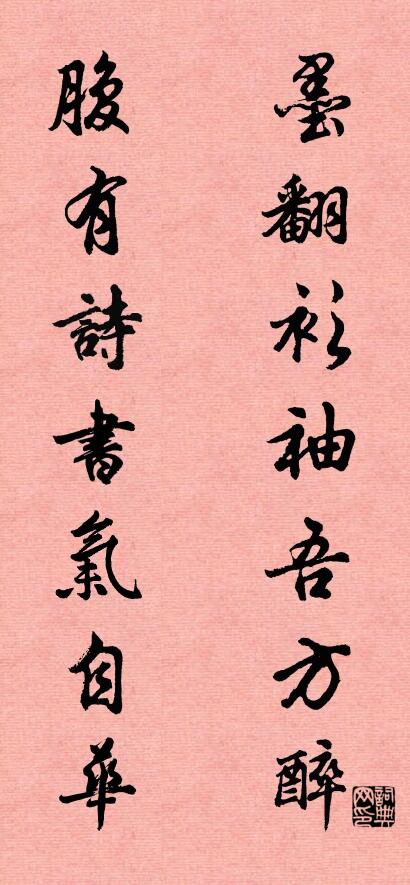 墨翻衫袖吾方醉
腹有詩書氣自華
詞典網印